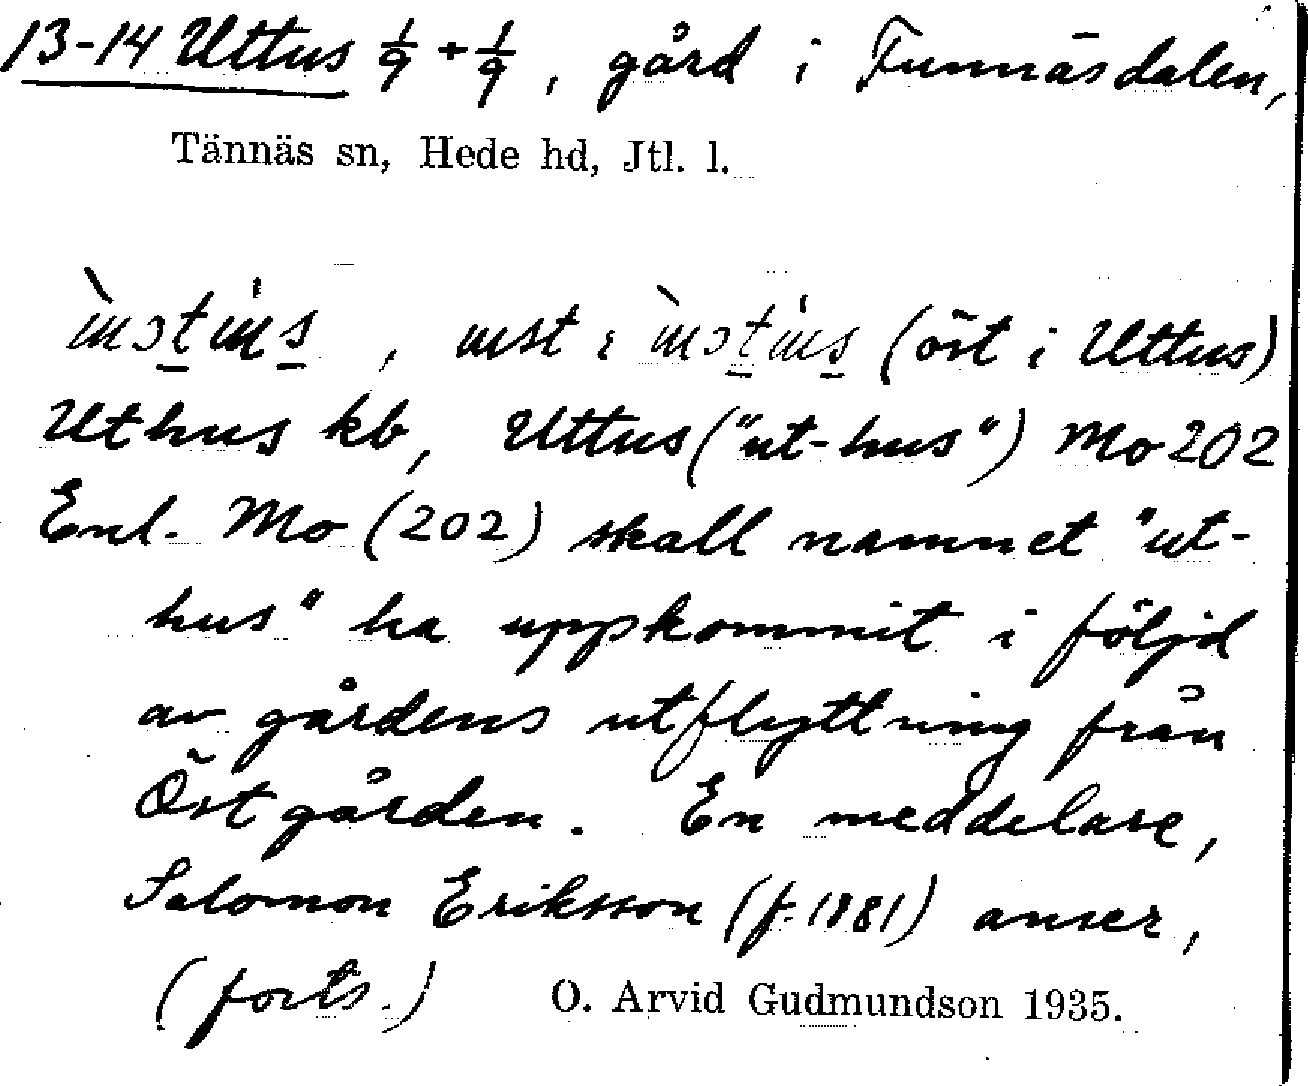 13-14 Uttus 1/9 + 1/9, gård i Funnäsdalen,
Tännäs sn, Hede hd, Jtl. l.
(öst i Uttus)
Uthus kb, Uttus ("ut-hus") Mo 202
Enl. Mo (202) skall namnet "ut-
hus" ha uppkommit i följd
av gårdens utflyttning från
Östgården. En meddelare,
Salomon Eriksson (f. 1881) anser,
(forts.) O. Arvid Gudmundson 1935.